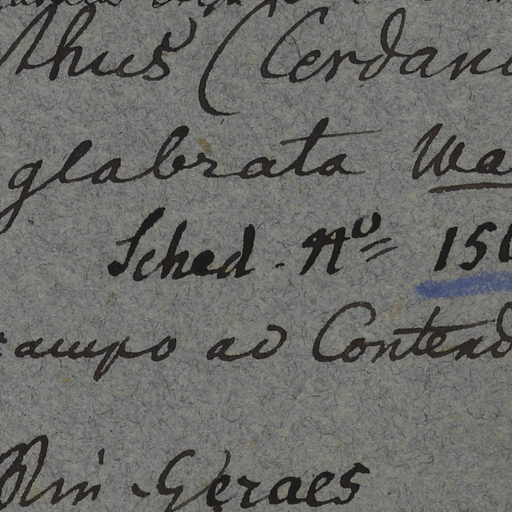 thus (Cerdan
glabrata Wa
Sched. No= 15
campo ad Contend
Min-Geraes